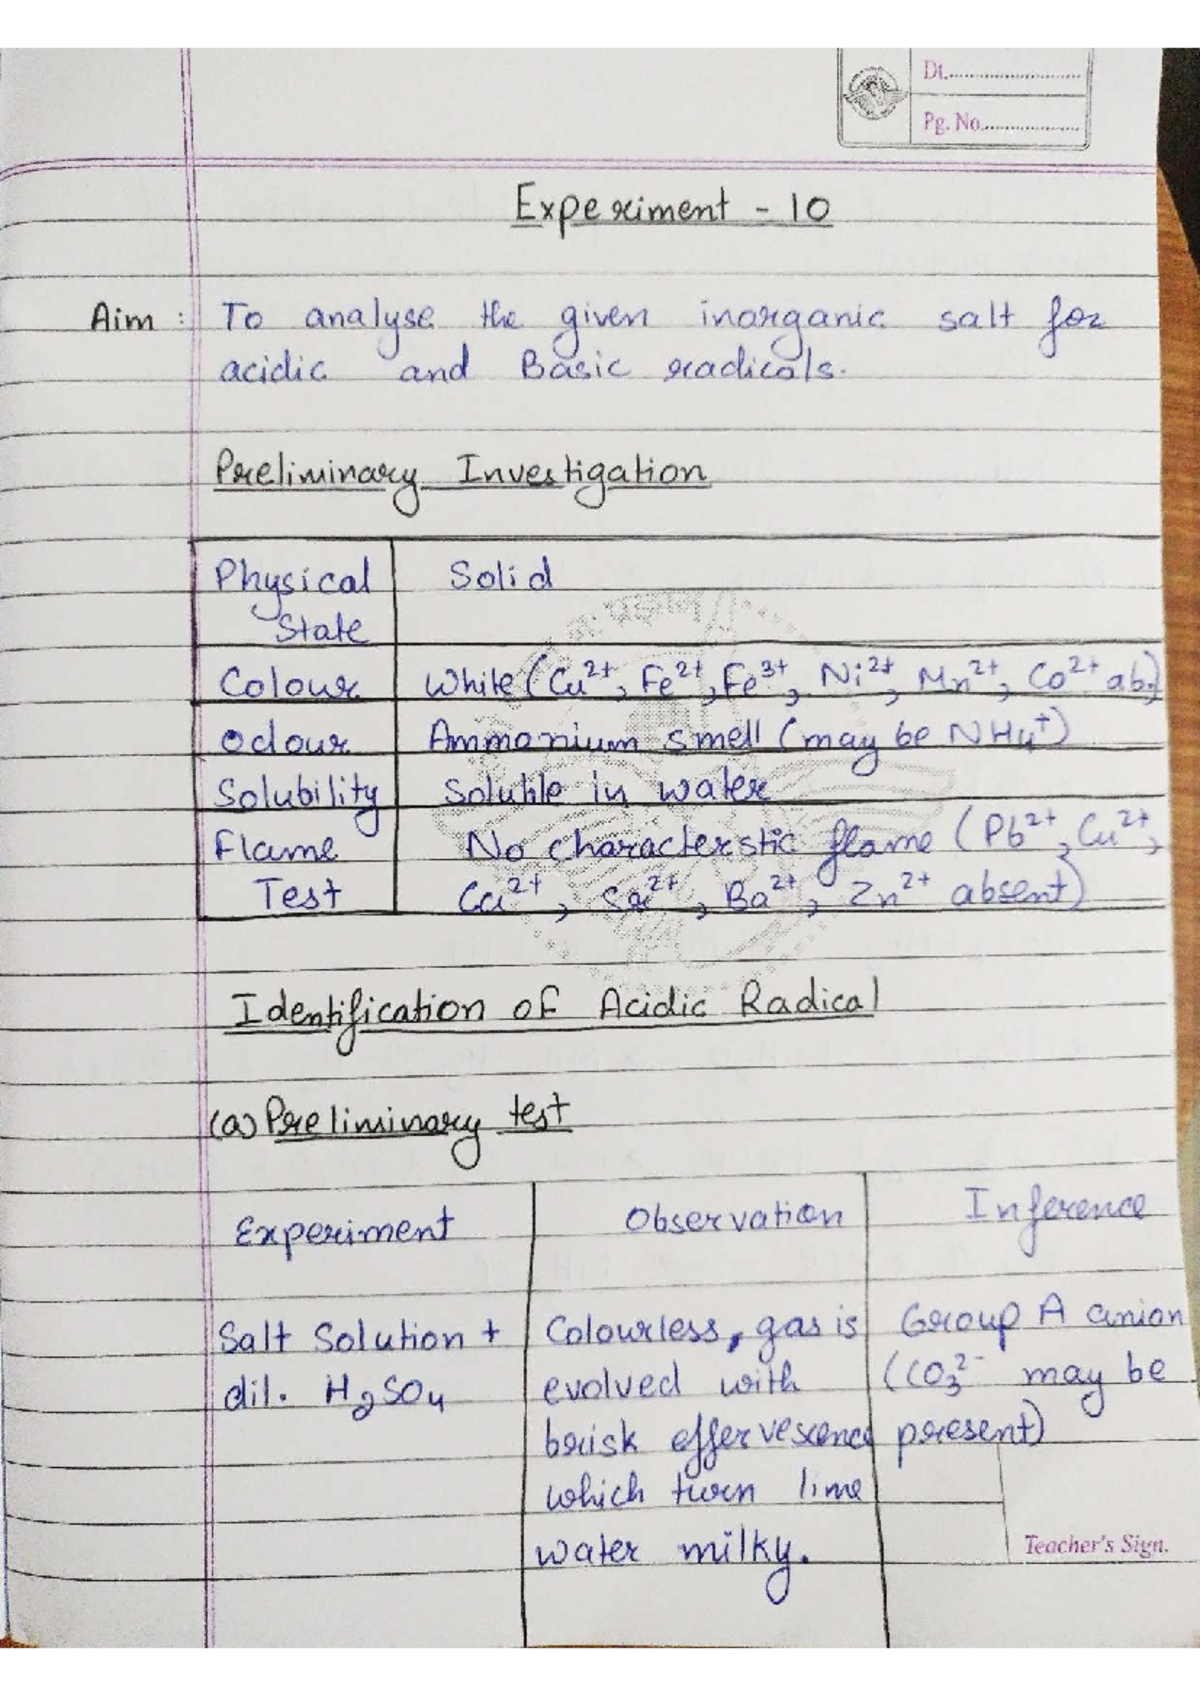 Dt.
Pg. No.
Experiment - 10
Aim : To analyse the given inorganic salt for
acidic and Basic radicals.
Preliminary Investigation
Physical Solid
State
Colour White (Cu²⁺, Fe²⁺, Fe³⁺, Ni²⁺, Mn²⁺, Co²⁺ ab.)
Odour Ammonium smell (may be NH₄⁺)
Solubility Soluble in water
Flame No characterstic flame (Pb²⁺, Cu²⁺,
Test Ca²⁺, Sr²⁺, Ba²⁺, Zn²⁺ absent)
Identification of Acidic Radical
(a) Preliminary test
Experiment Observation Inference
Salt Solution + Colourless, gas is Group A anion
dil. H₂SO₄ evolved with (CO₃²⁻ may be
brisk effervescence present)
which turn lime
water milky.
Teacher's Sign.